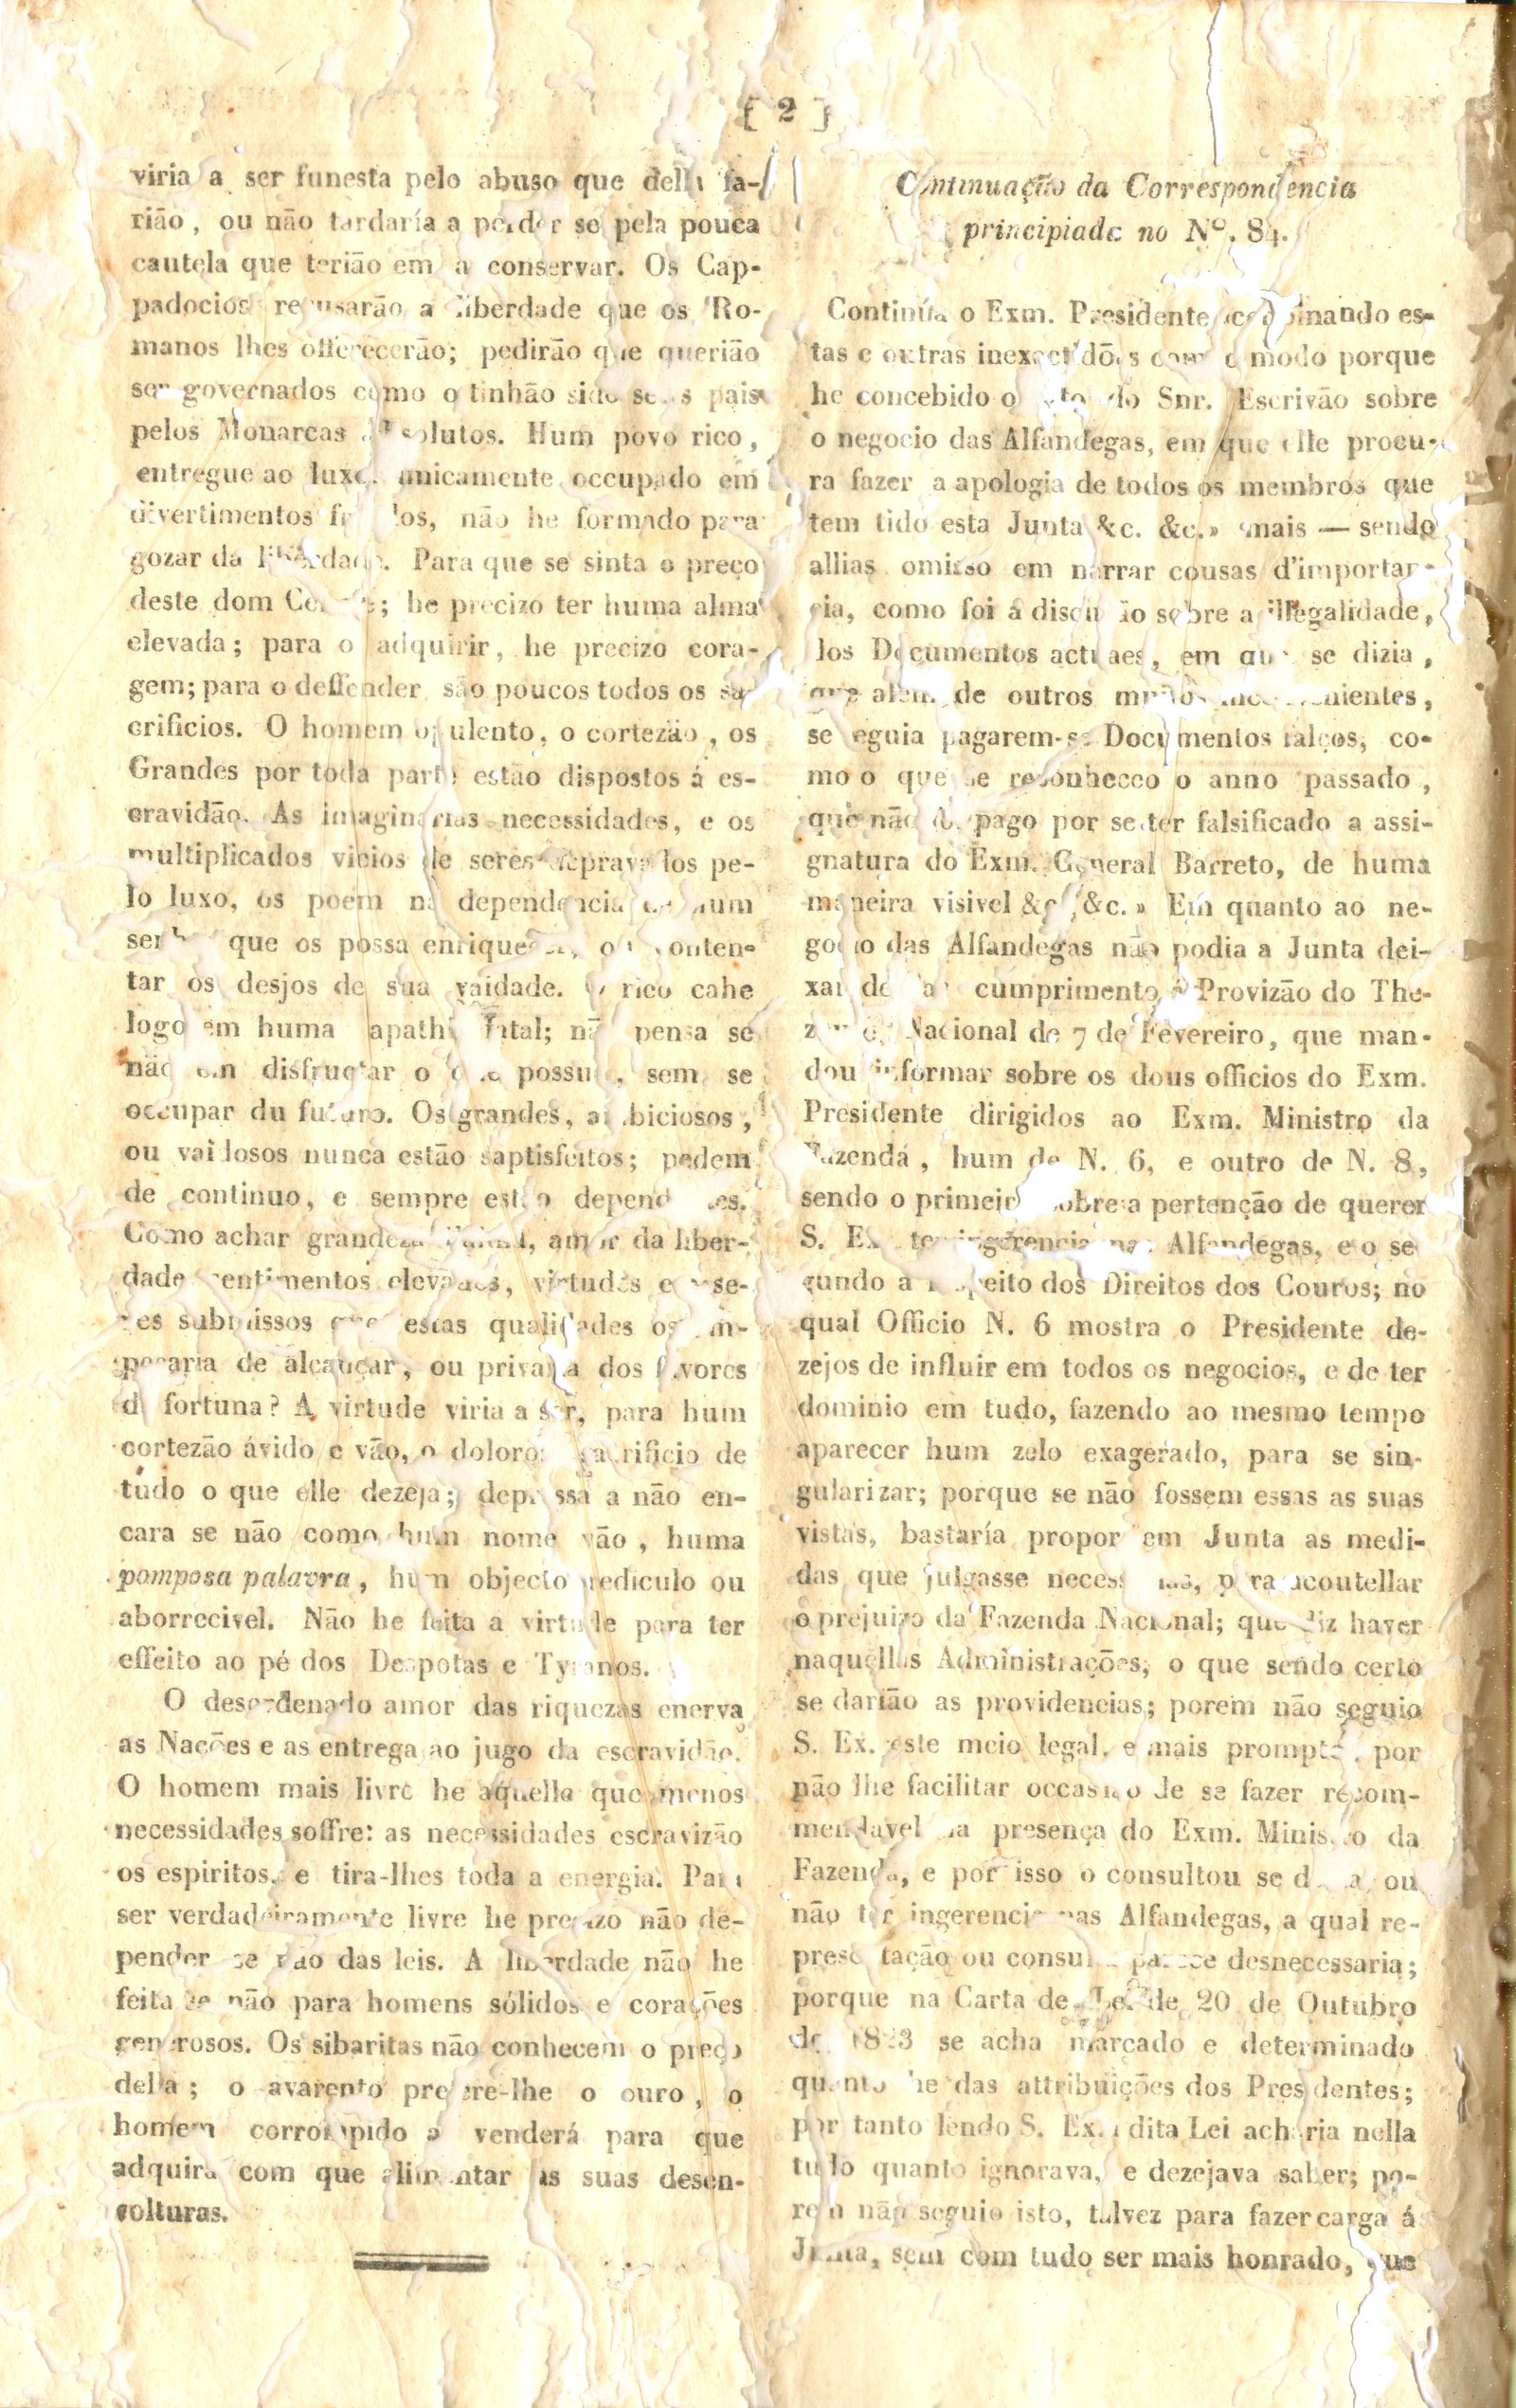 [ 2 ]
viria a ser funesta pelo abuso que della fa-
rião, ou não tardaría a perder se pela pouca
cautela que terião em a conservar. Os Cap-
padocios recusarão a liberdade que os Ro-
manos lhes offerecerão; pedirão que querião
ser governados como o tinhão sido seus pais
pelos Monarcas absolutos. Hum povo rico,
entregue ao luxo, unicamente occupado em
divertimentos não he formado para
gozar da liberdade. Para que se sinta o preço
deste dom he precizo ter huma alma
elevada; para o adquirir, he precizo cora-
gem; para o deffender são poucos todos os sa-
crificios. O homem opulento, o cortezão, os
Grandes por toda parte estão dispostos á es-
cravidão. As imaginarias necessidades, e os
multiplicados vicios de seres depravados pe-
lo luxo, os poem na dependencia de hum
senhor que os possa enriquecer, ou conten-
tar os desjos de sua vaidade. O rico cahe
logo em huma apathia fatal; não pensa se
não em disfructar o que possue, sem se
occupar du futuro. Os grandes, ambiciosos,
ou vaidosos nunca estão saptisfeitos; pedem
de continuo, e sempre estão dependentes.
Como achar grandeza amor da liber-
dade sentimentos elevados, virtudes em se-
res submissos que estas qualidades os im-
pecaria de alcançar, ou privaria dos favores
da fortuna? A virtude viria a ser, para hum
cortezão ávido e vão, o doloroso sacrificio de
túdo o que elle dezeja; depressa a não en-
cara se não como hum nome vão, huma
pomposa palavra, hum objecto rediculo ou
aborrecivel. Não he feita a virtude para ter
effeito ao pé dos Despotas e Tyranos.
O desordenado amor das riquezas enerva
as Nações e as entrega ao jugo da escravidão.
O homem mais livre he aquelle que menos
necessidades soffre: as necessidades escravizão
os espiritos, e tira-lhes toda a energia. Para
ser verdadeiramente livre he precizo não de-
pender se não das leis. A liberdade não he
feita se não para homens sólidos e corações
generosos. Os sibaritas não conhecem o preço
della; o avarento prefere-lhe o ouro, o
homem corrompido a venderá para que
adquira com que alimentar as suas desen-
volturas.
Continuação da Correspondencia
principiada no Nº. 84.
Continúa o Exm. Presidente es-
tas e outras inexactidões com o modo porque
he concebido o do Snr. Escrivão sobre
o negocio das Alfandegas, em que elle procu-
ra fazer a apologia de todos os membros que
tem tido esta Junta &c. &c. » mais — sendo
allias omisso em narrar cousas d'importan-
cia, como foi a discução sobre a illegalidade,
dos Documentos actuaes, em que se dizia,
que alem de outros muitos inconvenientes,
se seguia pagarem-se Documentos falços, co-
mo o que se reconhecco o anno passado,
que não foi pago por se ter falsificado a assi-
gnatura do Exm. General Barreto, de huma
maneira visivel &c. &c. » Em quanto ao ne-
gocio das Alfandegas não podia a Junta dei-
xar de dar cumprimento á Provizão do The-
zouro Nacional de 7 de Fevereiro, que man-
dou informar sobre os dous officios do Exm.
Presidente dirigidos ao Exm. Ministro da
Fazenda, hum de N. 6, e outro de N. 8,
sendo o primeiro sobre a pertenção de querer
S. Ex. ter ingerencia nas Alfandegas, e o se
gundo a respeito dos Direitos dos Couros; no
qual Officio N. 6 mostra o Presidente de-
zejos de influir em todos os negocios, e de ter
dominio em tudo, fazendo ao mesmo tempo
aparecer hum zelo exagerado, para se sin-
gularizar; porque se não fossem essas as suas
vistas, bastaría propor em Junta as medi-
das que julgasse necessarias, para acoutellar
o prejuizo da Fazenda Nacional; que diz haver
naquellas Administrações, o que sendo certo
se darião as providencias; porem não seguio
S. Ex. este meio legal, e mais prompto, por
não lhe facilitar occasião de se fazer recom-
mendavel na presença do Exm. Ministro da
Fazenda, e por isso o consultou se devia, ou
não ter ingerencia nas Alfandegas, a qual re-
presentação ou consulta parece desnecessaria;
porque na Carta de Lei de 20 de Outubro
de 1823 se acha marcado e determinado
quanto he das attribuições dos Presidentes;
por tanto lendo S. Ex. a dita Lei acharia nella
tudo quanto ignorava, e dezejava saber; po-
rem não seguio isto, talvez para fazer carga á
Junta, sem com tudo ser mais honrado, que